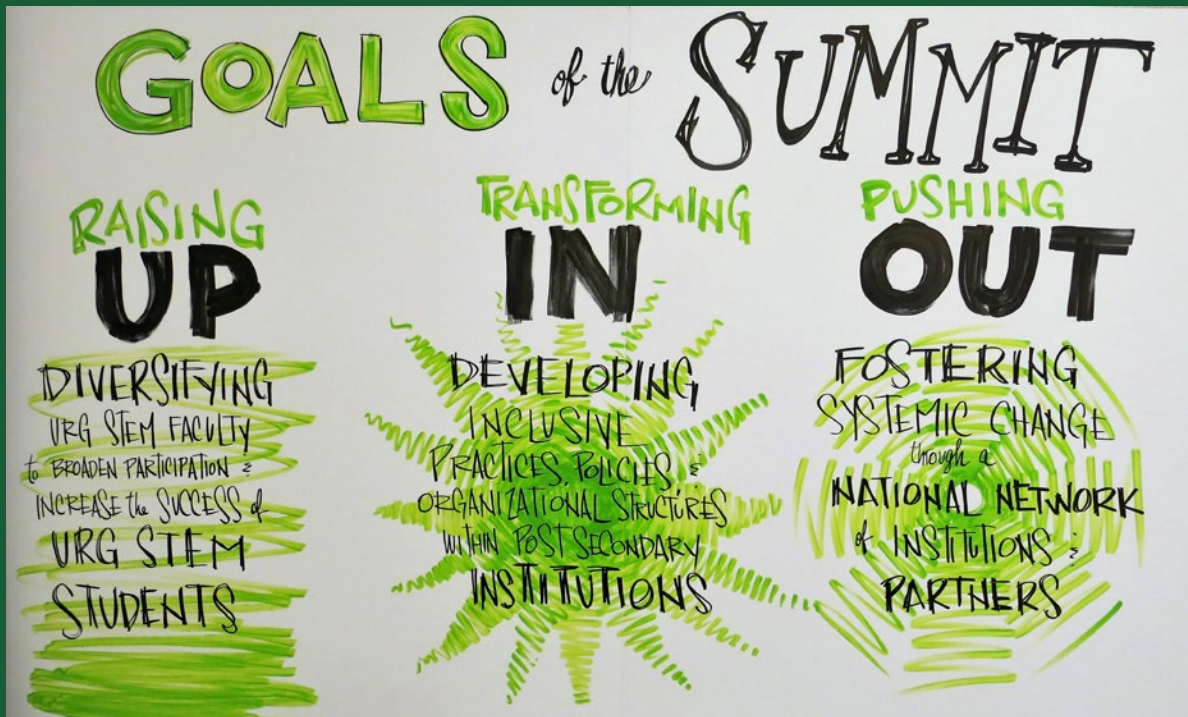 GOALS of the SUMMIT
RAISING
UP
DIVERSIFYING
URG STEM FACULTY
to BROADEN PARTICIPATION &
INCREASE the SUCCESS of
URG STEM
STUDENTS
TRANSFORMING
IN
DEVELOPING
INCLUSIVE
PRACTICES, POLICIES, &
ORGANIZATIONAL STRUCTURES
WITHIN POST SECONDARY
INSTITUTIONS
PUSHING
OUT
FOSTERING
SYSTEMIC CHANGE
through a
NATIONAL NETWORK
of INSTITUTIONS &
PARTNERS